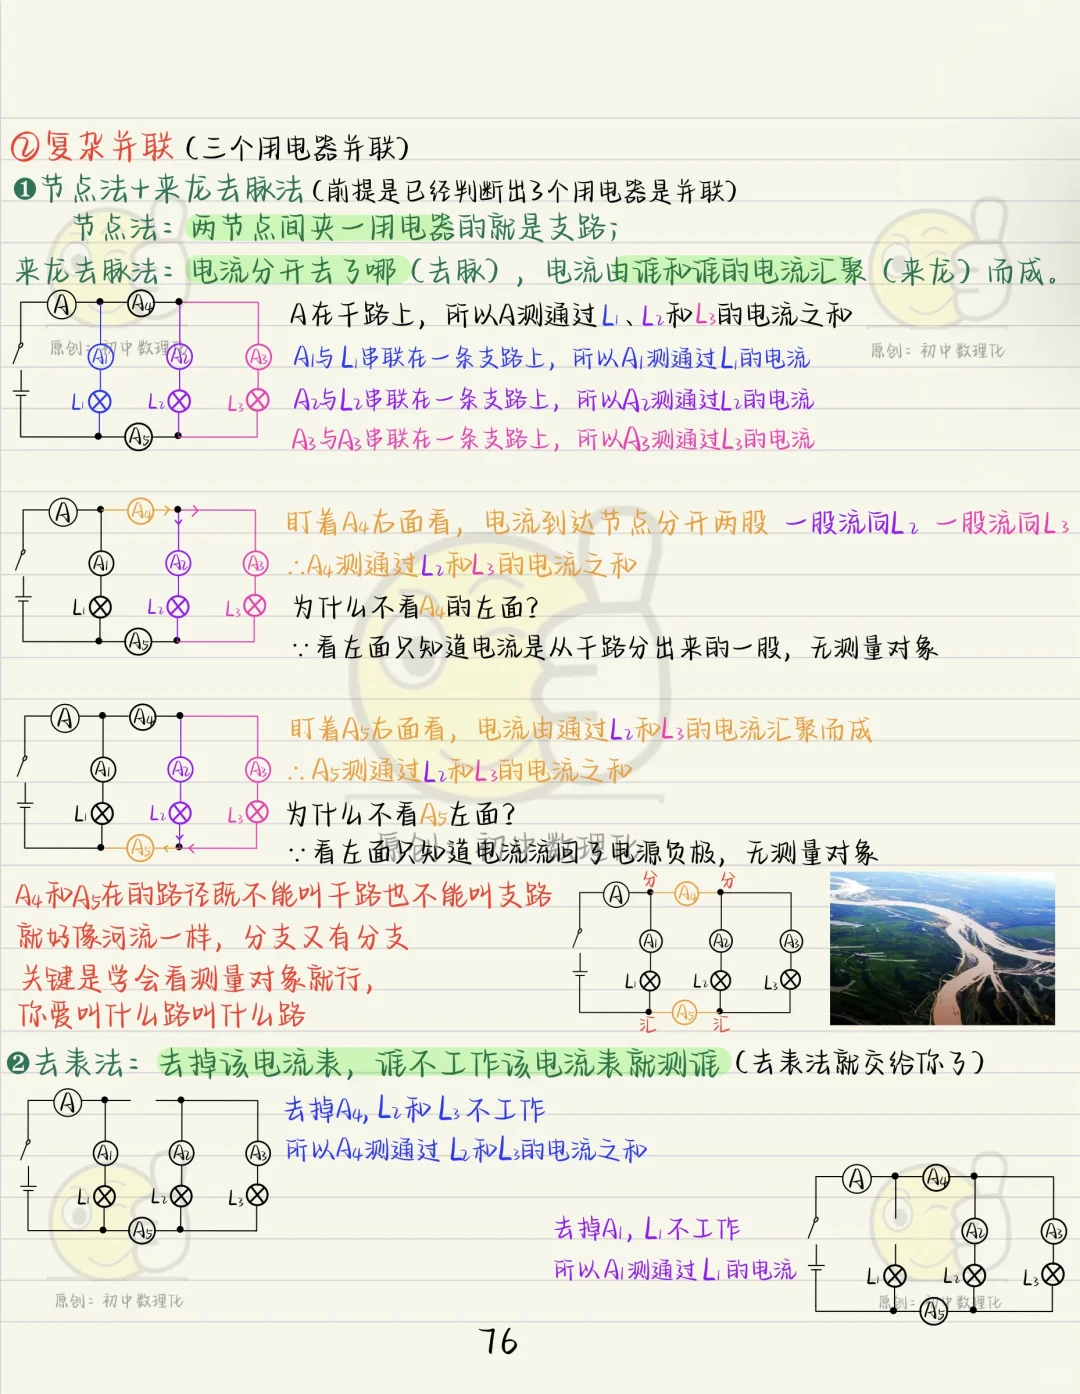 ②复杂并联(三个用电器并联)
❶节点法+来龙去脉法(前提是已经判断出3个用电器是并联)
节点法：两节点间夹一用电器的就是支路；
来龙去脉法：电流分开去了哪(去脉)，电流由谁和谁的电流汇聚(来龙)而成。
A A4
A在干路上，所以A测通过L1、L2和L3的电流之和
原创：初中数理化
原创：初中数理化
A1 A2 A3
A1与L1串联在一条支路上，所以A1测通过L1的电流
L1 L2 L3
A2与L2串联在一条支路上，所以A2测通过L2的电流
A5
A3与A3串联在一条支路上，所以A3测通过L3的电流
A A4
盯着A4右面看，电流到达节点分开两股 一股流向L2 一股流向L3
A1 A2 A3
∴A4测通过L2和L3的电流之和
L1 L2 L3
为什么不看A4的左面？
A5
∵看左面只知道电流是从干路分出来的一股，无测量对象
A A4
盯着A5右面看，电流由通过L2和L3的电流汇聚而成
A1 A2 A3
∴A5测通过L2和L3的电流之和
L1 L2 L3
为什么不看A5左面？
原创：初中数理化
A5
∵看左面只知道电流流回了电源负极，无测量对象
A4和A5在的路径既不能叫干路也不能叫支路
就好像河流一样，分支又有分支
关键是学会看测量对象就行，
你爱叫什么路叫什么路
分 分
A A4
A1 A2 A3
L1 L2 L3
A5
汇 汇
❷去表法：去掉该电流表，谁不工作该电流表就测谁(去表法就交给你了)
A
去掉A4，L2和L3不工作
A1 A2 A3
所以A4测通过L2和L3的电流之和
L1 L2 L3
A5
原创：初中数理化
去掉A1，L1不工作
所以A1测通过L1的电流
A A4
A2 A3
L1 L2 L3
原创：初中数理化
A5
76